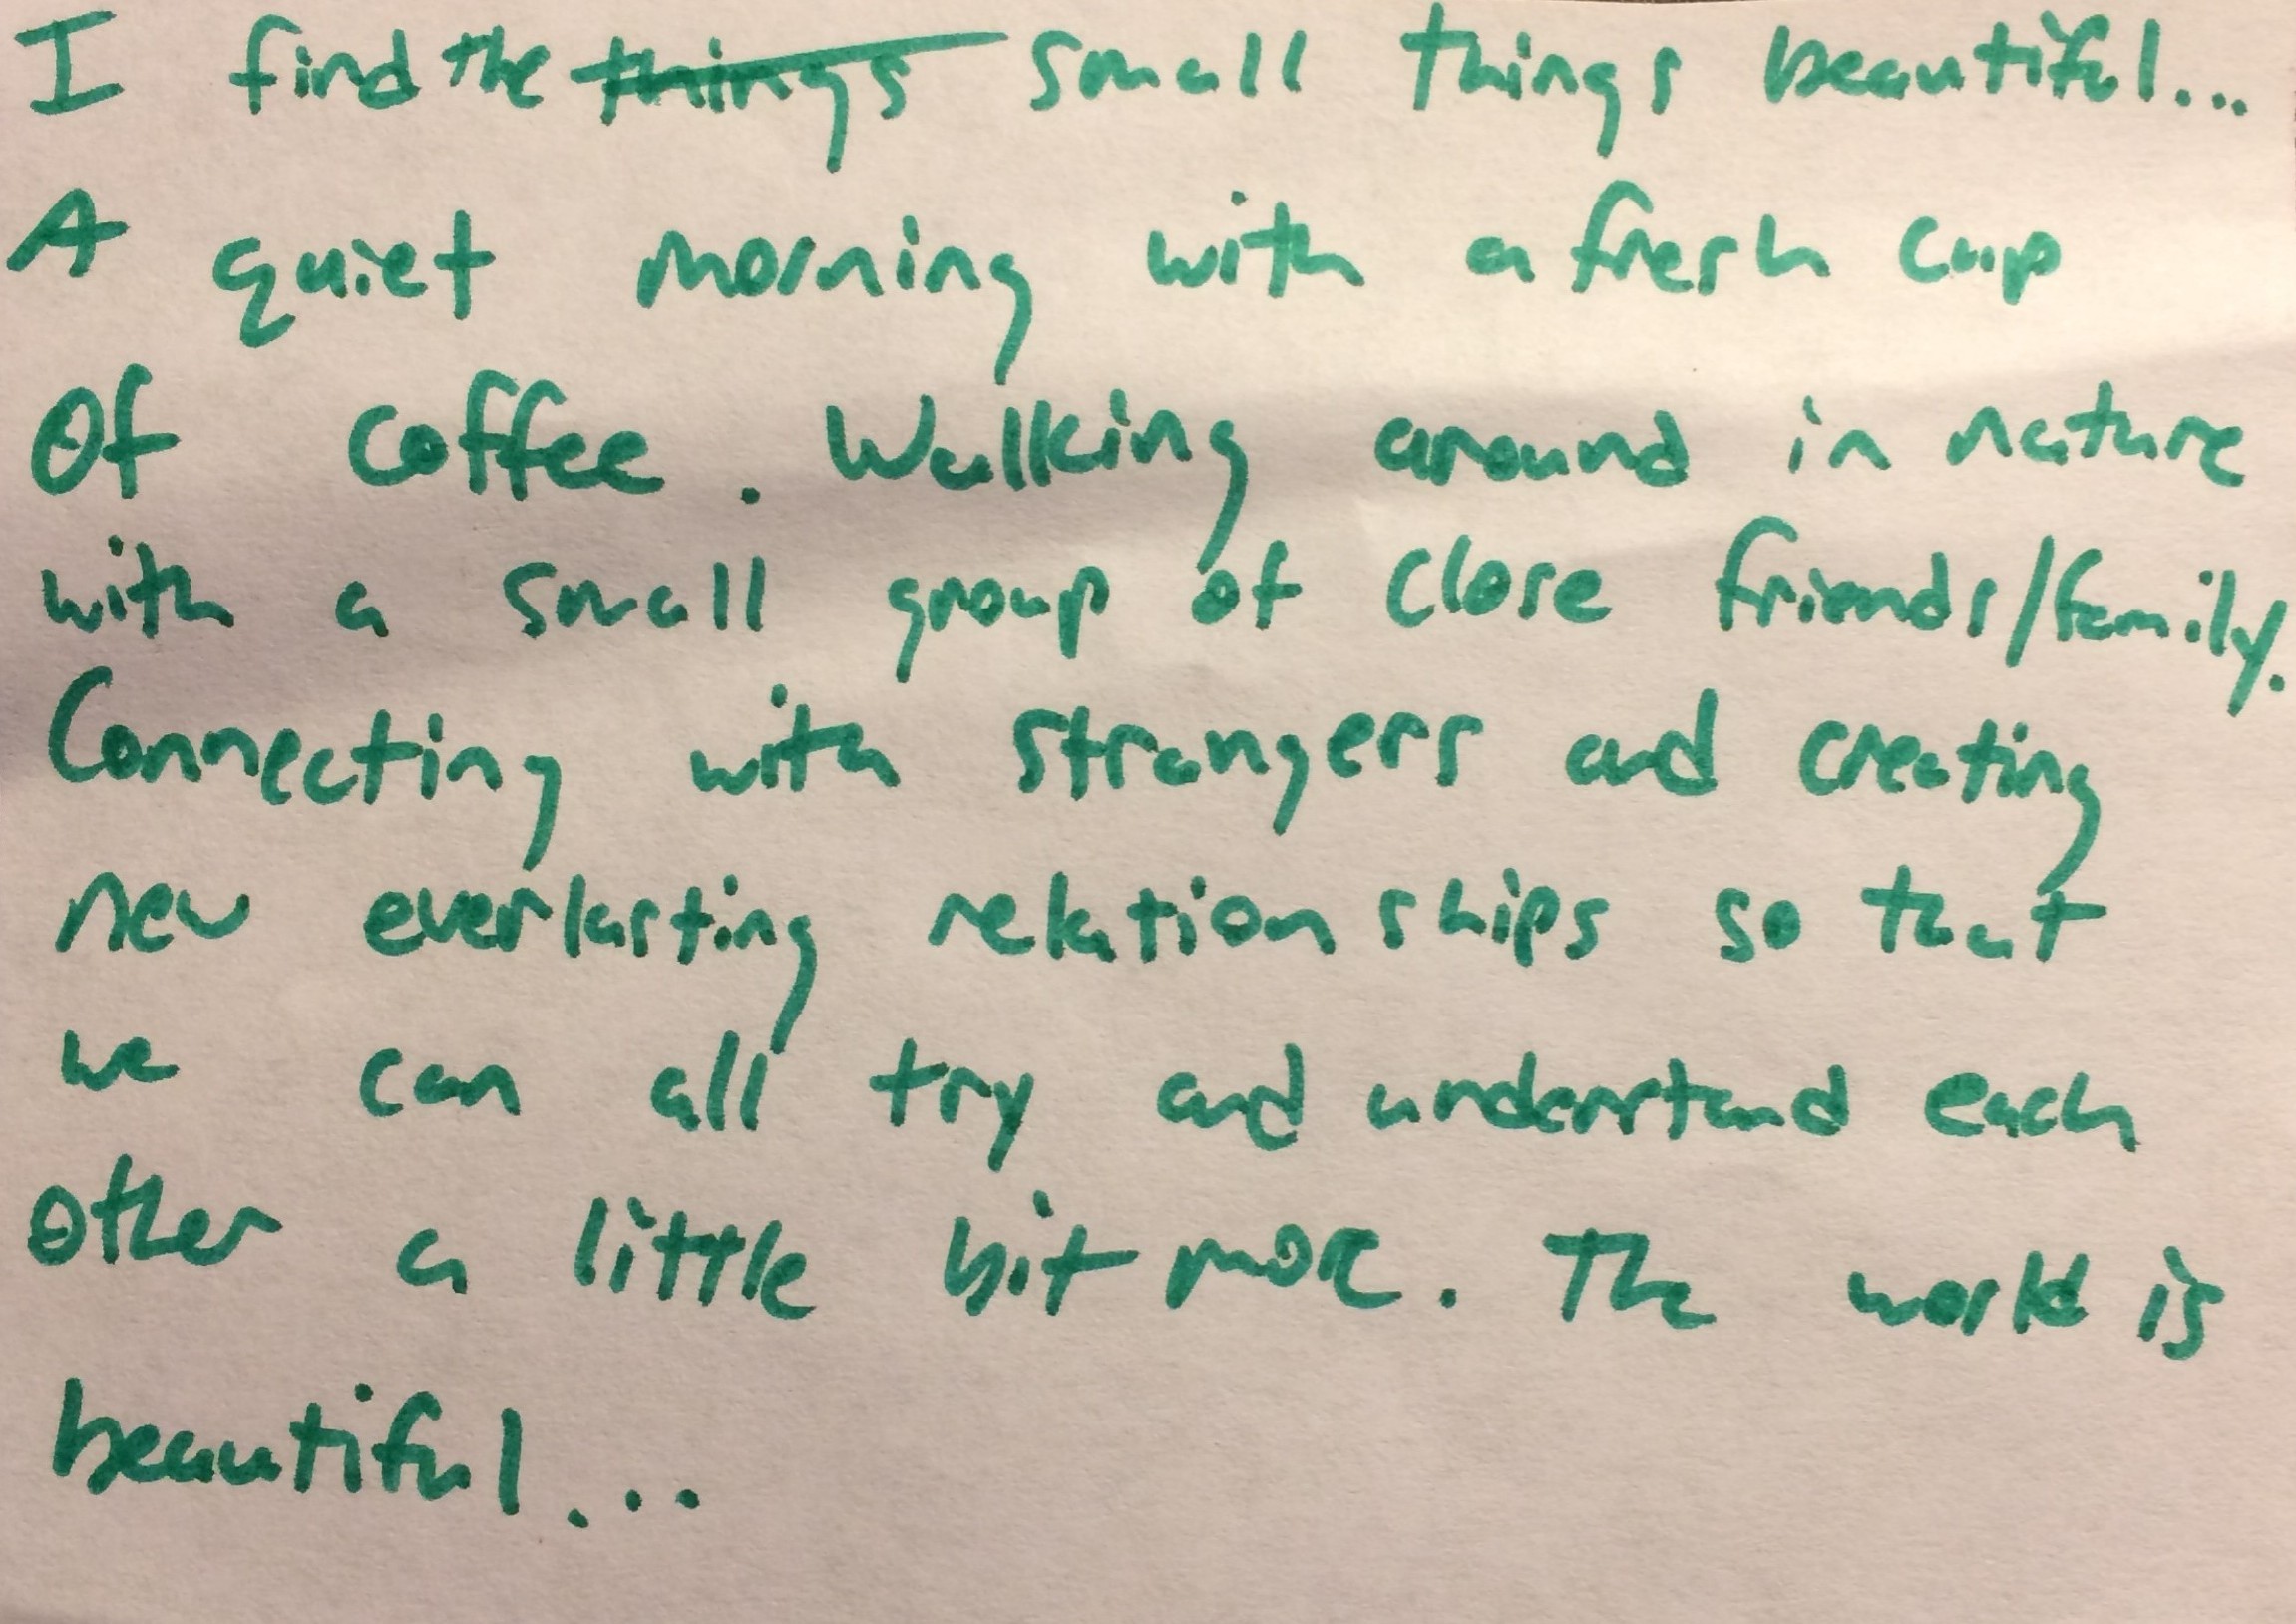 I find the things small things beautiful...
A quiet morning with a fresh cup
Of coffee. Walking around in nature
with a small group of close friends/family.
Connecting with strangers and creating
new everlasting relationships so that
we can all try and understand each
other a little bit more. The world is
beautiful...